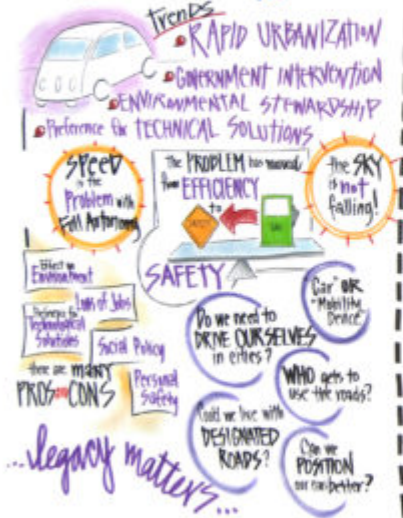 Trends
RAPID URBANIZATION
GOVERNMENT INTERVENTION
ENVIRONMENTAL STEWARDSHIP
Preference for TECHNICAL SOLUTIONS
SPEED
is the
Problem with
Full Autonomy
The PROBLEM has moved
from EFFICIENCY
to
SAFETY
GAS
SAFETY
the SKY
is not
falling!
Effect on
Environment
Loss of Jobs
Preference for
Technological
Solutions
Social Policy
Personal
Safety
there are MANY
PROS CONS
"Car" OR
"Mobility
Device"
Do we need to
DRIVE OURSELVES
in cities?
WHO gets to
use the roads?
Could we live with
DESIGNATED
ROADS?
Can we
POSITION
our cars better?
...legacy matters...